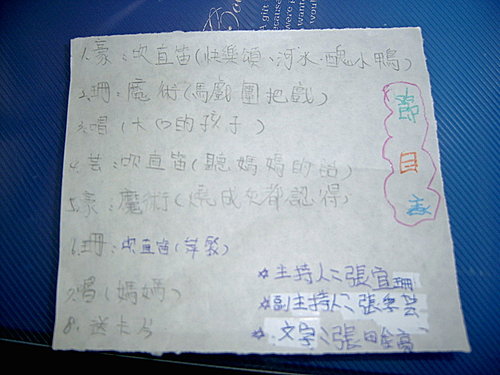 1.豪:吹直笛(快樂頌、河水、醜小鴨)
2.珊:魔術(馬戲團把戲)
3.唱(大口的孩子)
4.芸:吹直笛(聽媽媽的話)
5.豪:魔術(燒成灰都認得)
6.珊:吹直笛(萍聚)
7.唱(媽媽)
8.送卡片
節目表
*主持人:張宜珊
*副主持人:張芸
*文字:張豪
A gift